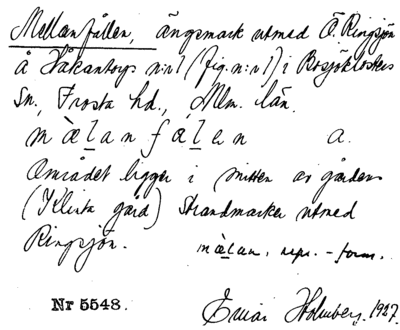 Mellanfållen, ängsmark utmed Ö. Ringsjön
å Håkantorps n:r 1 (fig. n:r 1) i Bosjöklosters
Sn., Frosta hd., Mlm. län.
mæ̀lanfálen a.
Området ligger i mitten av gårdens
(Klinta gård) Strandmarker utmed
Ringsjön. mæ̀lan, repr. - form.
Nr 5548. Einar Holmberg. 1927.